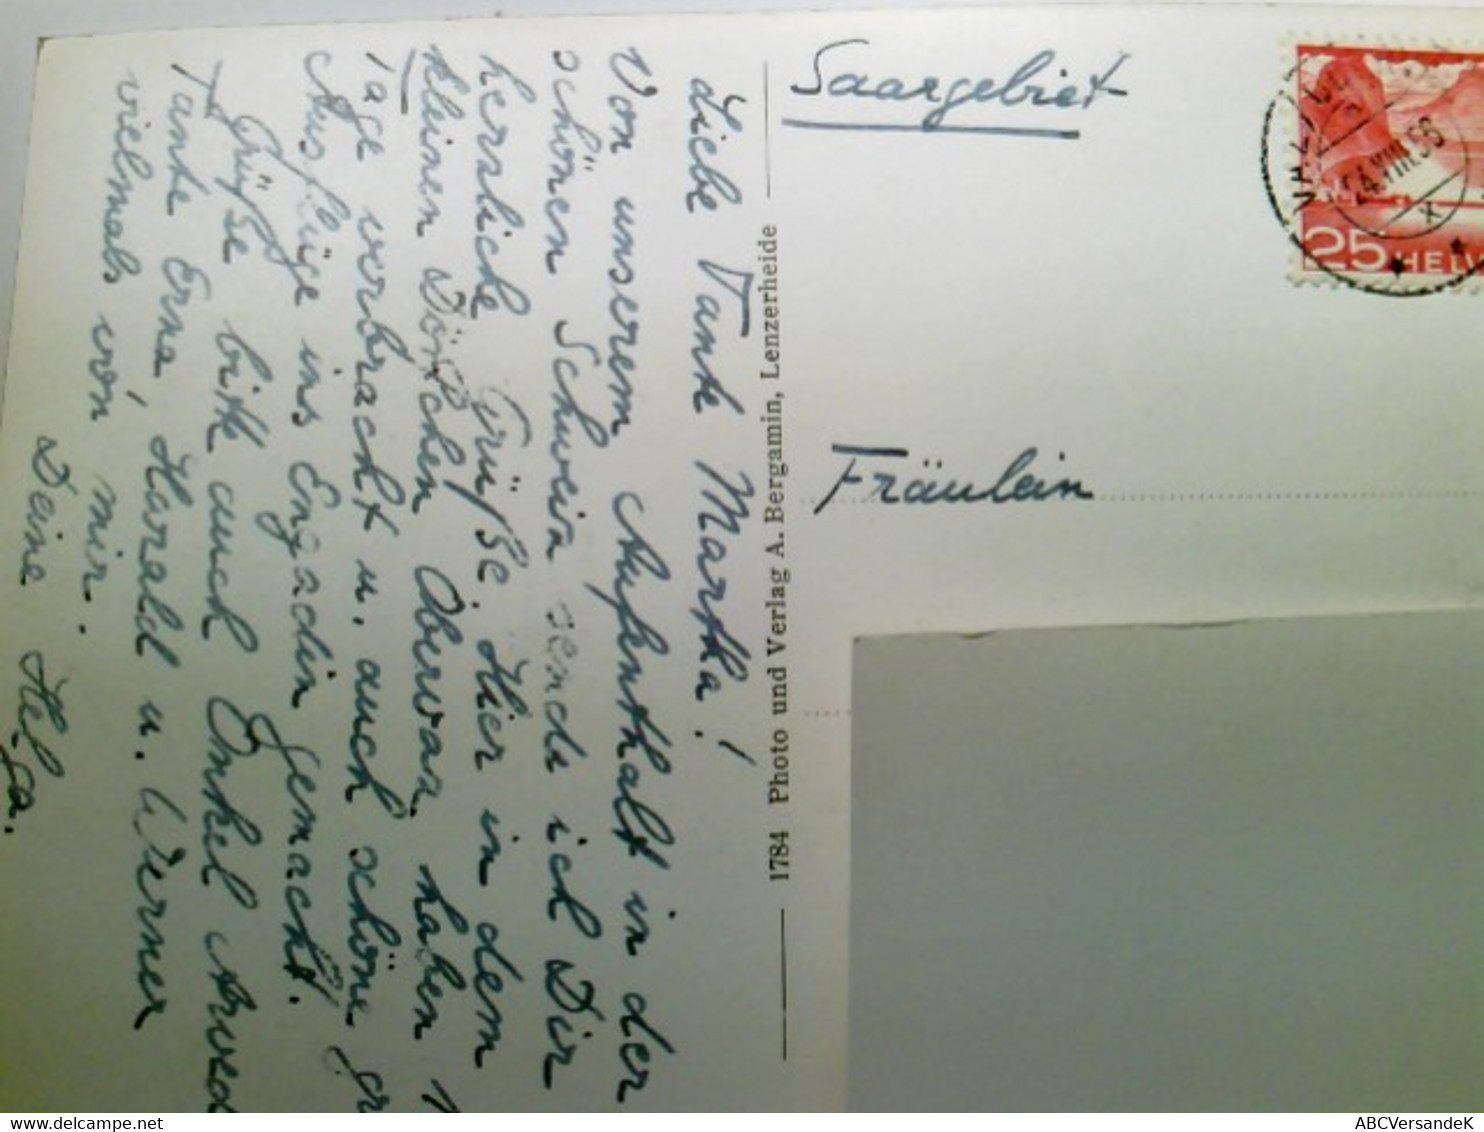 Liebe Tante Martha!
Von unserem Aufenthalt in der
schönen Schweiz sende ich Dir
herrliche Grüße. Hier in dem
kleinen Dörfchen Obervaz haben
Tage verbracht u. auch schöne
Ausflüge ins Engadin gemacht.
Grüße bitte auch Onkel
Tante Erna, Harald u. Werner
vielmals von mir.
Deine Helga.
1784 Photo und Verlag A. Bergamin, Lenzerheide
Saargebiet
Fräulein
24.VIII.56
X
25 HELV
ABCVersandeK